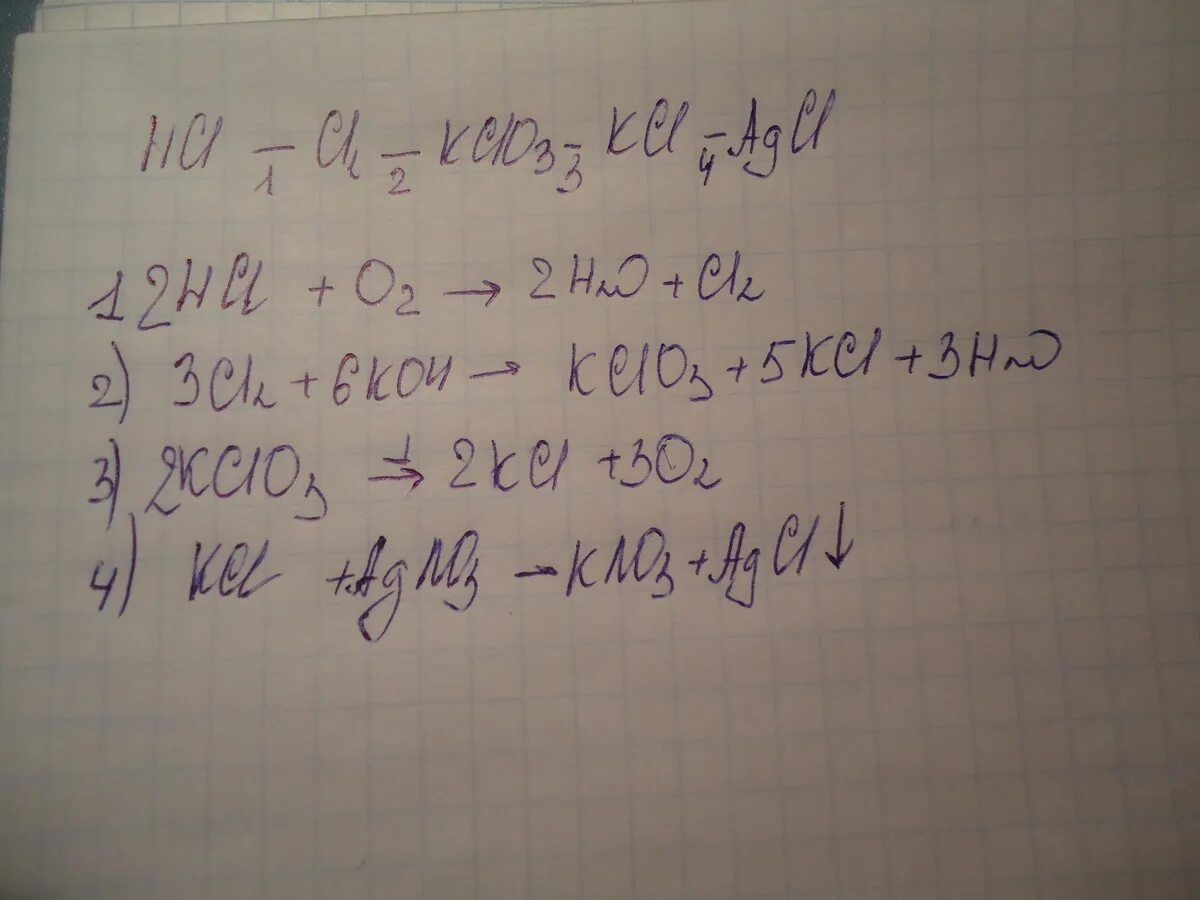 HCl —1 Cl₂ —2 KClO₃ —3 KCl —4 AgCl
1 2HCl + O₂ → 2H₂O + Cl₂
2) 3Cl₂ + 6KOH → KClO₃ + 5KCl + 3H₂O
3) 2KClO₃ →ᵗ 2KCl + 3O₂
4) KCl + AgNO₃ → KNO₃ + AgCl↓